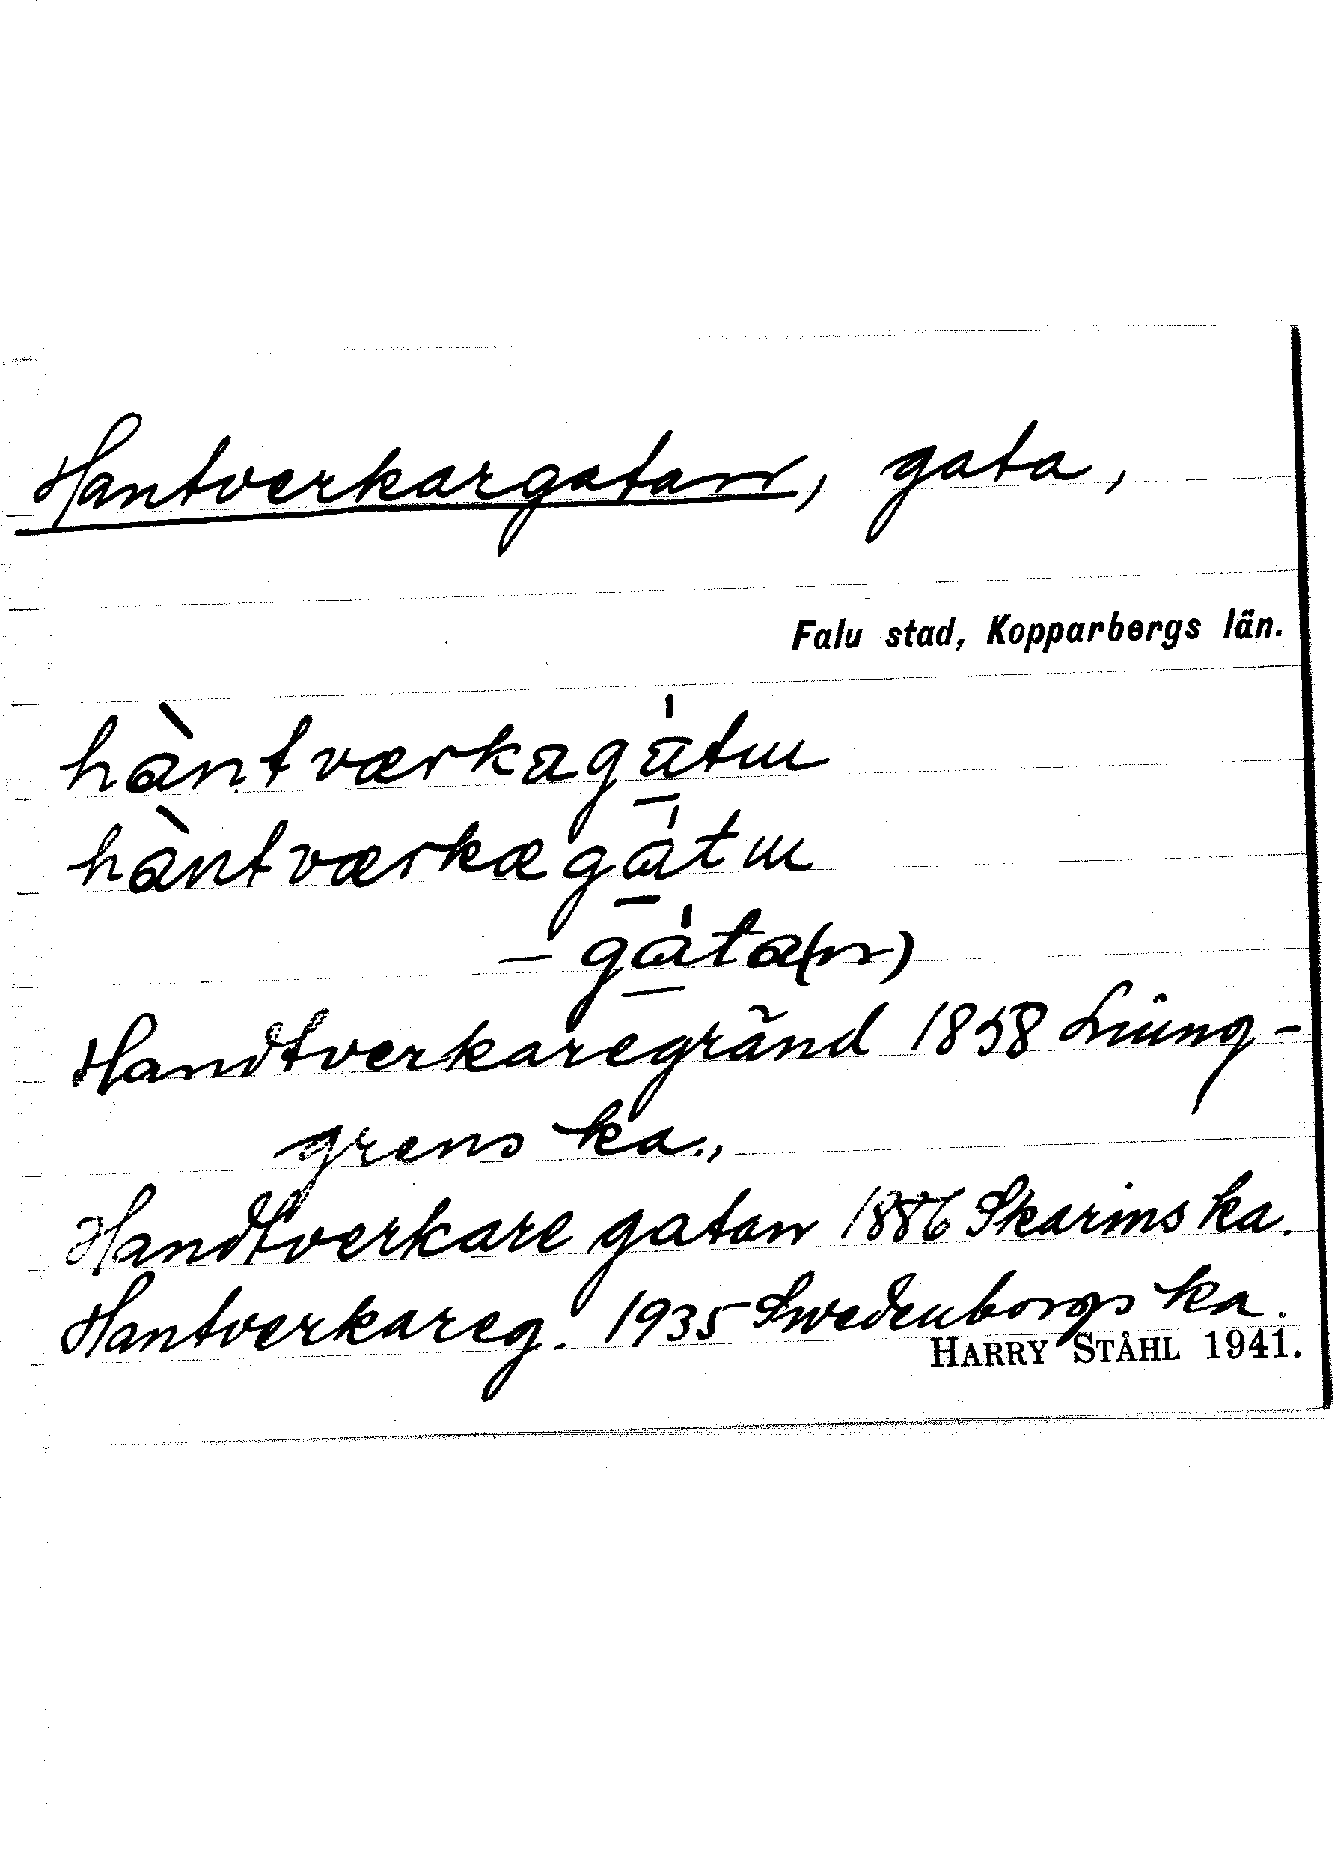 Hantverkargatan, gata,
Falu stad, Kopparbergs län.
hàntværkagátɯ
hàntværkægátɯ
– gáta(n)
Handtverkaregränd 1858 Ljung-
grens ka.,
Handtverkaregatan 1886 Skarins ka.
Hantverkareg. 1935 Swedenborgs ka.
HARRY STÅHL 1941.